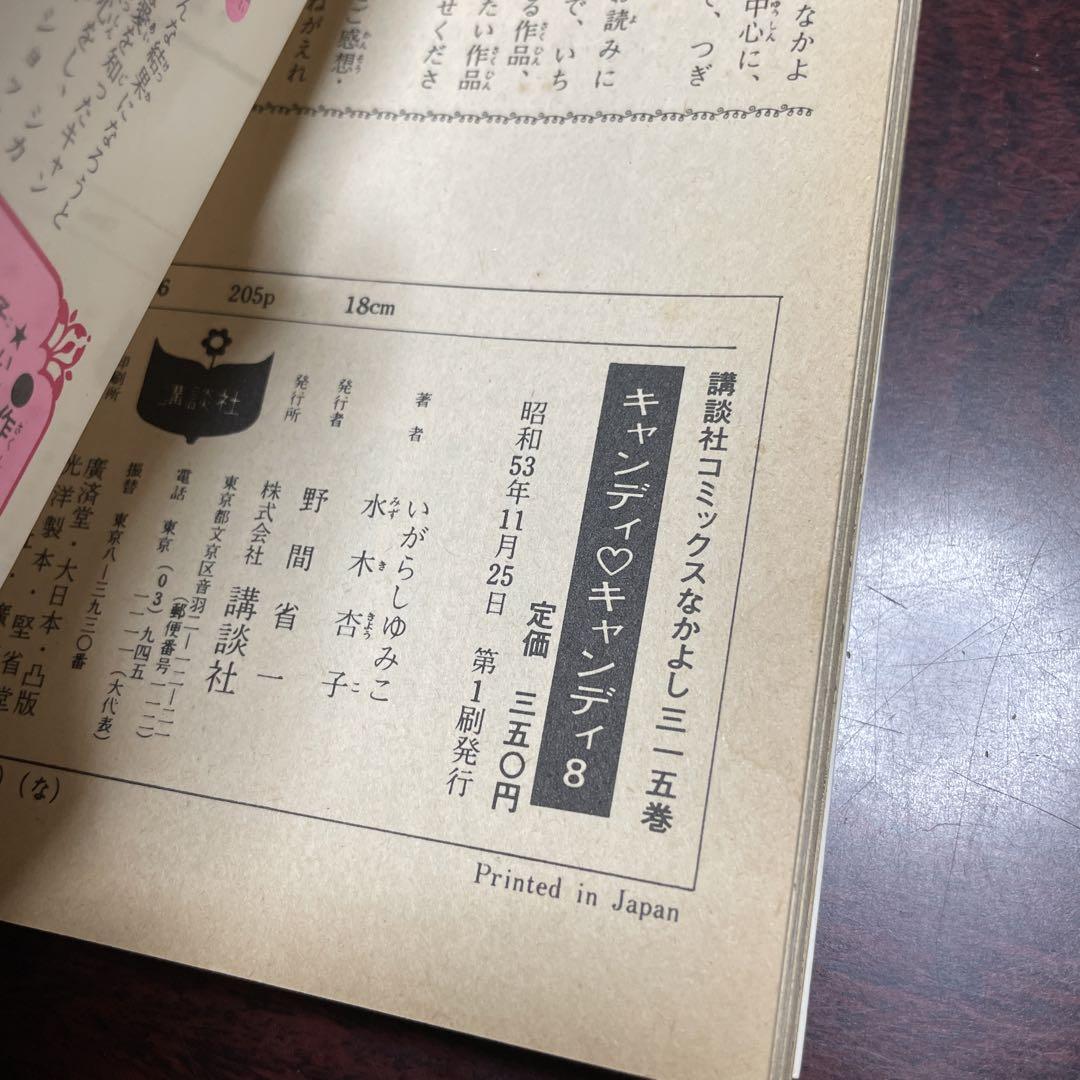 なかよ
中心に、
て、つぎ
お読みに
で、いち
る作品、
たい作品
せくださ
ご感想・
ねがえれ
んな結果になろうと
6 205p 18cm
講談社コミックスなかよし三一五巻
キャンディ♡キャンディ8
定価 三五〇円
昭和53年11月25日 第1刷発行
著者 いがらしゆみこ
水木杏子
みずききょうこ
発行者 野間省一
発行所 株式会社 講談社
東京都文京区音羽二ー一二ー二一
(郵便番号一一二)
電話 東京(03)九四五
一一一一(大代表)
振替 東京八ー三九三〇番
印刷所
廣済堂・大日本・凸版
光洋製本・堅省堂
講談社
(な)
Printed in Japan